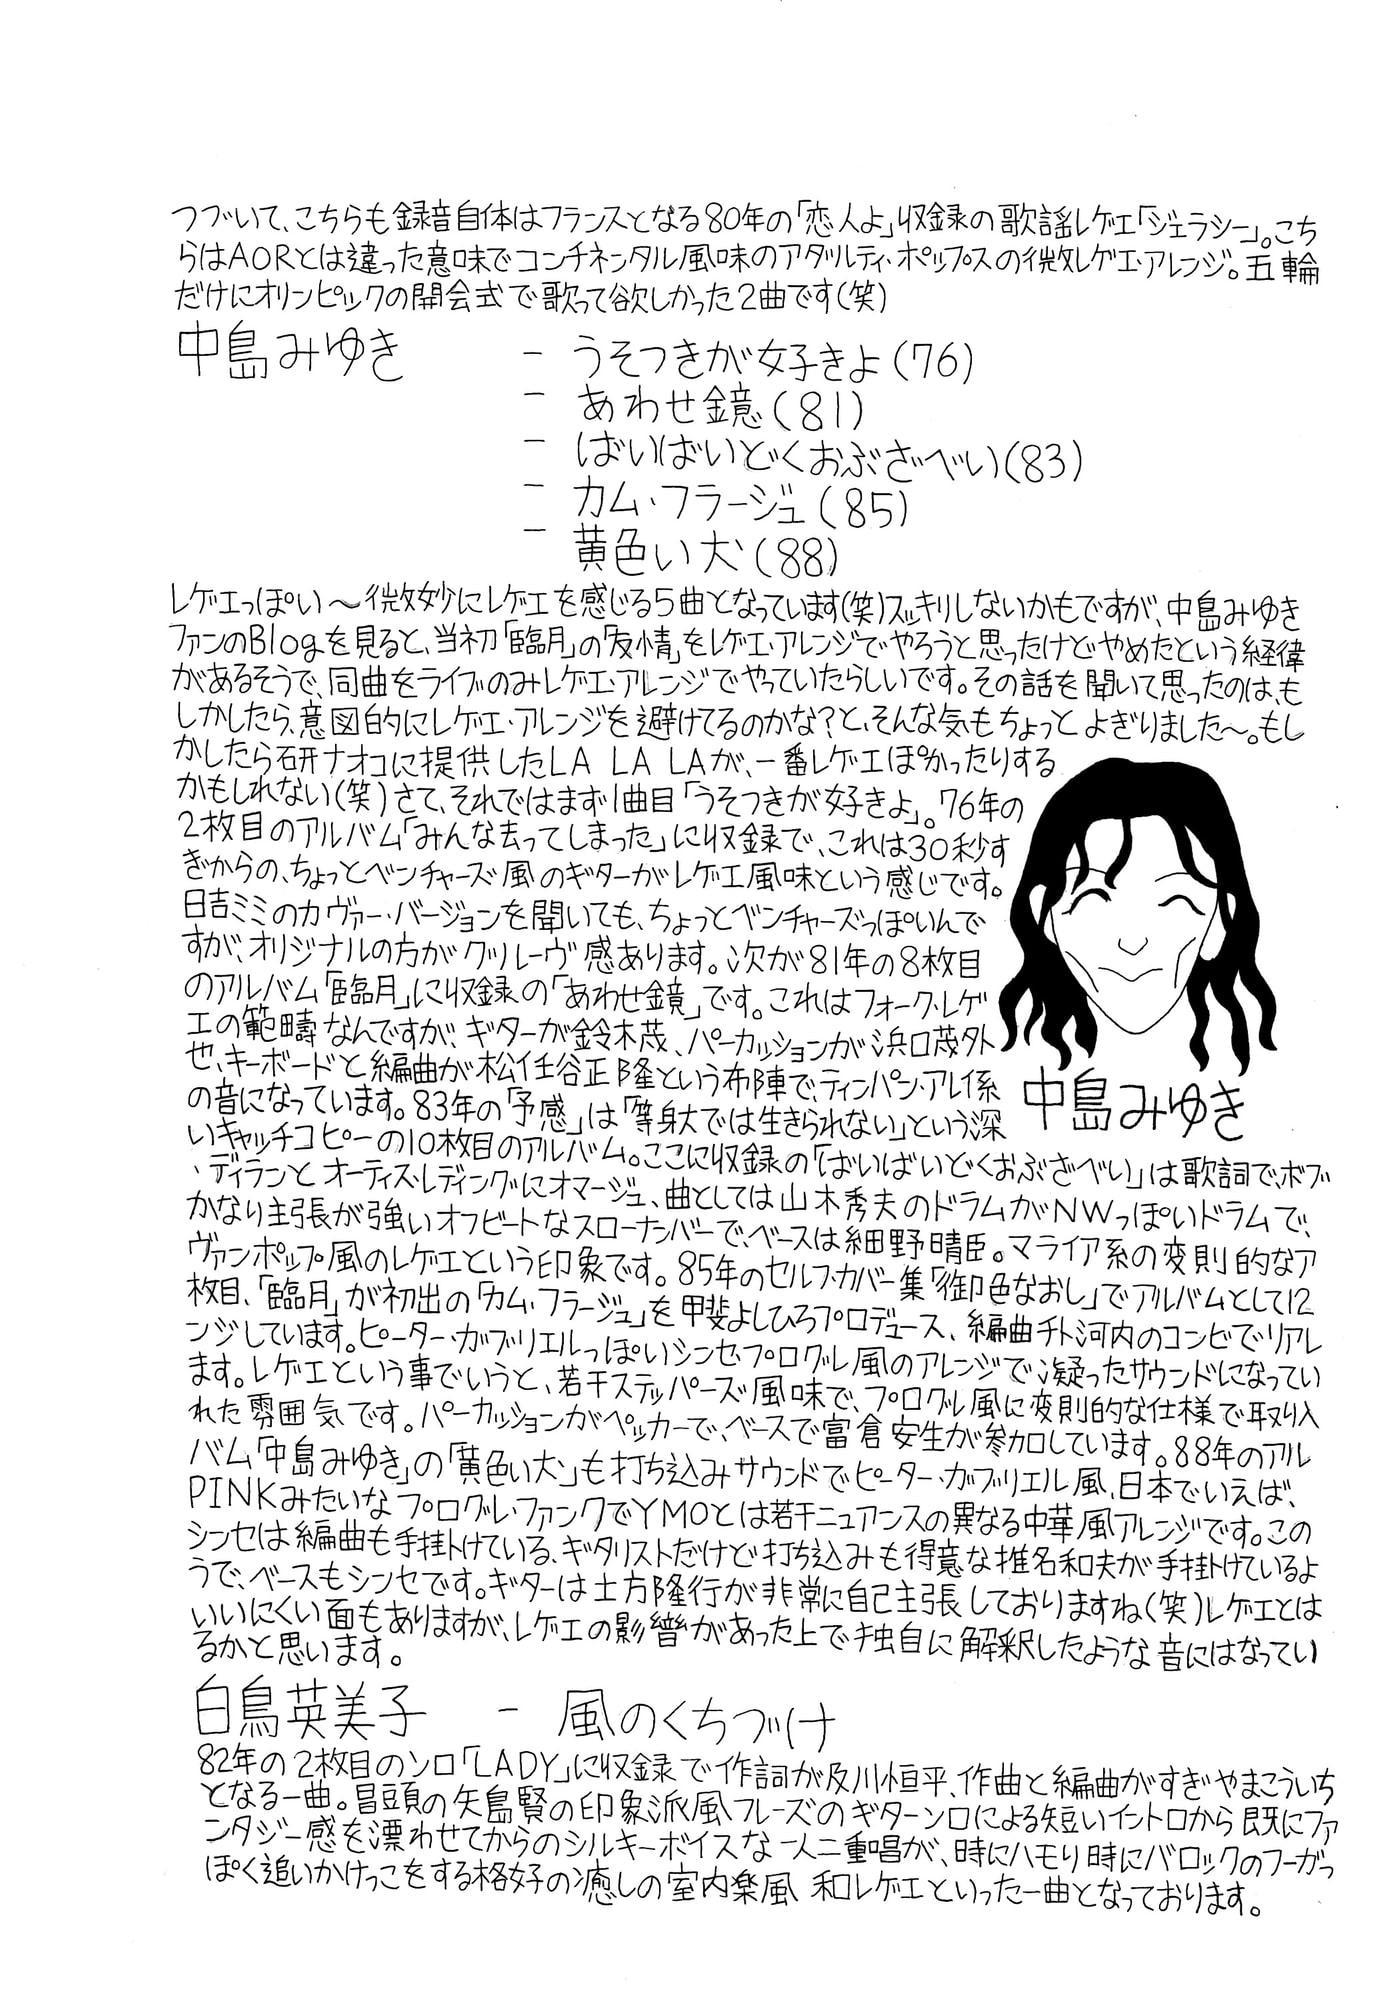 つづいて、こちらも録音自体はフランスとなる80年の「恋人よ」収録の歌謡レゲエ「ジェラシー」。こち
らはAORとは違った意味でコンチネンタル風味のアダルティ・ポップスの微レゲエ・アレンジ。五輪
だけにオリンピックの開会式で歌って欲しかった2曲です(笑)
中島みゆき - うそつきが好きよ(76)
- あわせ鏡(81)
- ばいばいどくおぶざべい(83)
- カム・フラージュ(85)
- 黄色い犬(88)
レゲエっぽい〜微妙にレゲエを感じる5曲となっています(笑)スッキリしないかもですが、中島みゆき
ファンのBlogを見ると、当初「臨月」の「友情」をレゲエ・アレンジでやろうと思ったけどやめたという経緯
があるそうで、同曲をライブのみレゲエ・アレンジでやっていたらしいです。その話を聞いて思ったのは、も
しかしたら、意図的にレゲエ・アレンジを避けてるのかな?と、そんな気もちょっとよぎりました〜。もし
かしたら研ナオコに提供したLA LA LAが、一番レゲエぽかったりする
かもしれない(笑)さて、それではまず1曲目「うそつきが好きよ」。76年の
2枚目のアルバム「みんな去ってしまった」に収録で、これは30秒す
ぎからの、ちょっとベンチャーズ風のギターがレゲエ風味という感じです。
日吉ミミのカヴァー・バージョンを聞いても、ちょっとベンチャーズっぽいんで
すが、オリジナルの方がグルーヴ感あります。次が81年の8枚目
のアルバム「臨月」に収録の「あわせ鏡」です。これはフォーク・レゲ
エの範疇なんですが、ギターが鈴木茂、パーカッションが浜口茂外
せ、キーボードと編曲が松任谷正隆という布陣で、ティンパン・アレイ系
の音になっています。83年の「予感」は「等身大では生きられない」という深
いキャッチコピーの10枚目のアルバム。ここに収録の「ばいばいどくおぶざべい」は歌詞で、ボブ
・ディランとオーティス・レディングにオマージュ、曲としては山木秀夫のドラムがNWっぽいドラムで、
かなり主張が強いオフビートなスローナンバーで、ベースは細野晴臣。マライア系の変則的なア
ヴァンポップ風のレゲエという印象です。85年のセルフ・カバー集「御色なおし」でアルバムとして12
枚目、「臨月」が初出の「カム・フラージュ」を甲斐よしひろプロデュース、編曲チト河内のコンビでリアレ
ンジしています。ピーター・ガブリエルっぽいシンセ・プログレ風のアレンジで凝ったサウンドになってい
ます。レゲエという事でいうと、若干ステッパーズ風味で、プログレ風に変則的な仕様で取り入
れた雰囲気です。パーカッションがペッカーで、ベースで富倉安生が参加しています。88年のアル
バム「中島みゆき」の「黄色い犬」も打ち込みサウンドでピーター・ガブリエル風、日本でいえば、
PINKみたいなプログレ・ファンクでYMOとは若干ニュアンスの異なる中華風アレンジです。この
シンセは編曲も手掛けている、ギタリストだけど打ち込みも得意な椎名和夫が手掛けているよ
うで、ベースもシンセです。ギターは土方隆行が非常に自己主張しておりますね(笑)レゲエとは
いいにくい面もありますが、レゲエの影響があった上で独自に解釈したような音にはなってい
るかと思います。
中島みゆき
白鳥英美子 - 風のくちづけ
82年の2枚目のソロ「LADY」に収録で作詞が及川恒平、作曲と編曲がすぎやまこういち
となる一曲。冒頭の矢島賢の印象派風フレーズのギターソロによる短いイントロから既にファ
ンタジー感を漂わせてからのシルキーボイスな一人二重唱が、時にハモり時にバロックのフーガっ
ぽく追いかけっこをする格好の癒しの室内楽風 和レゲエといった一曲となっております。